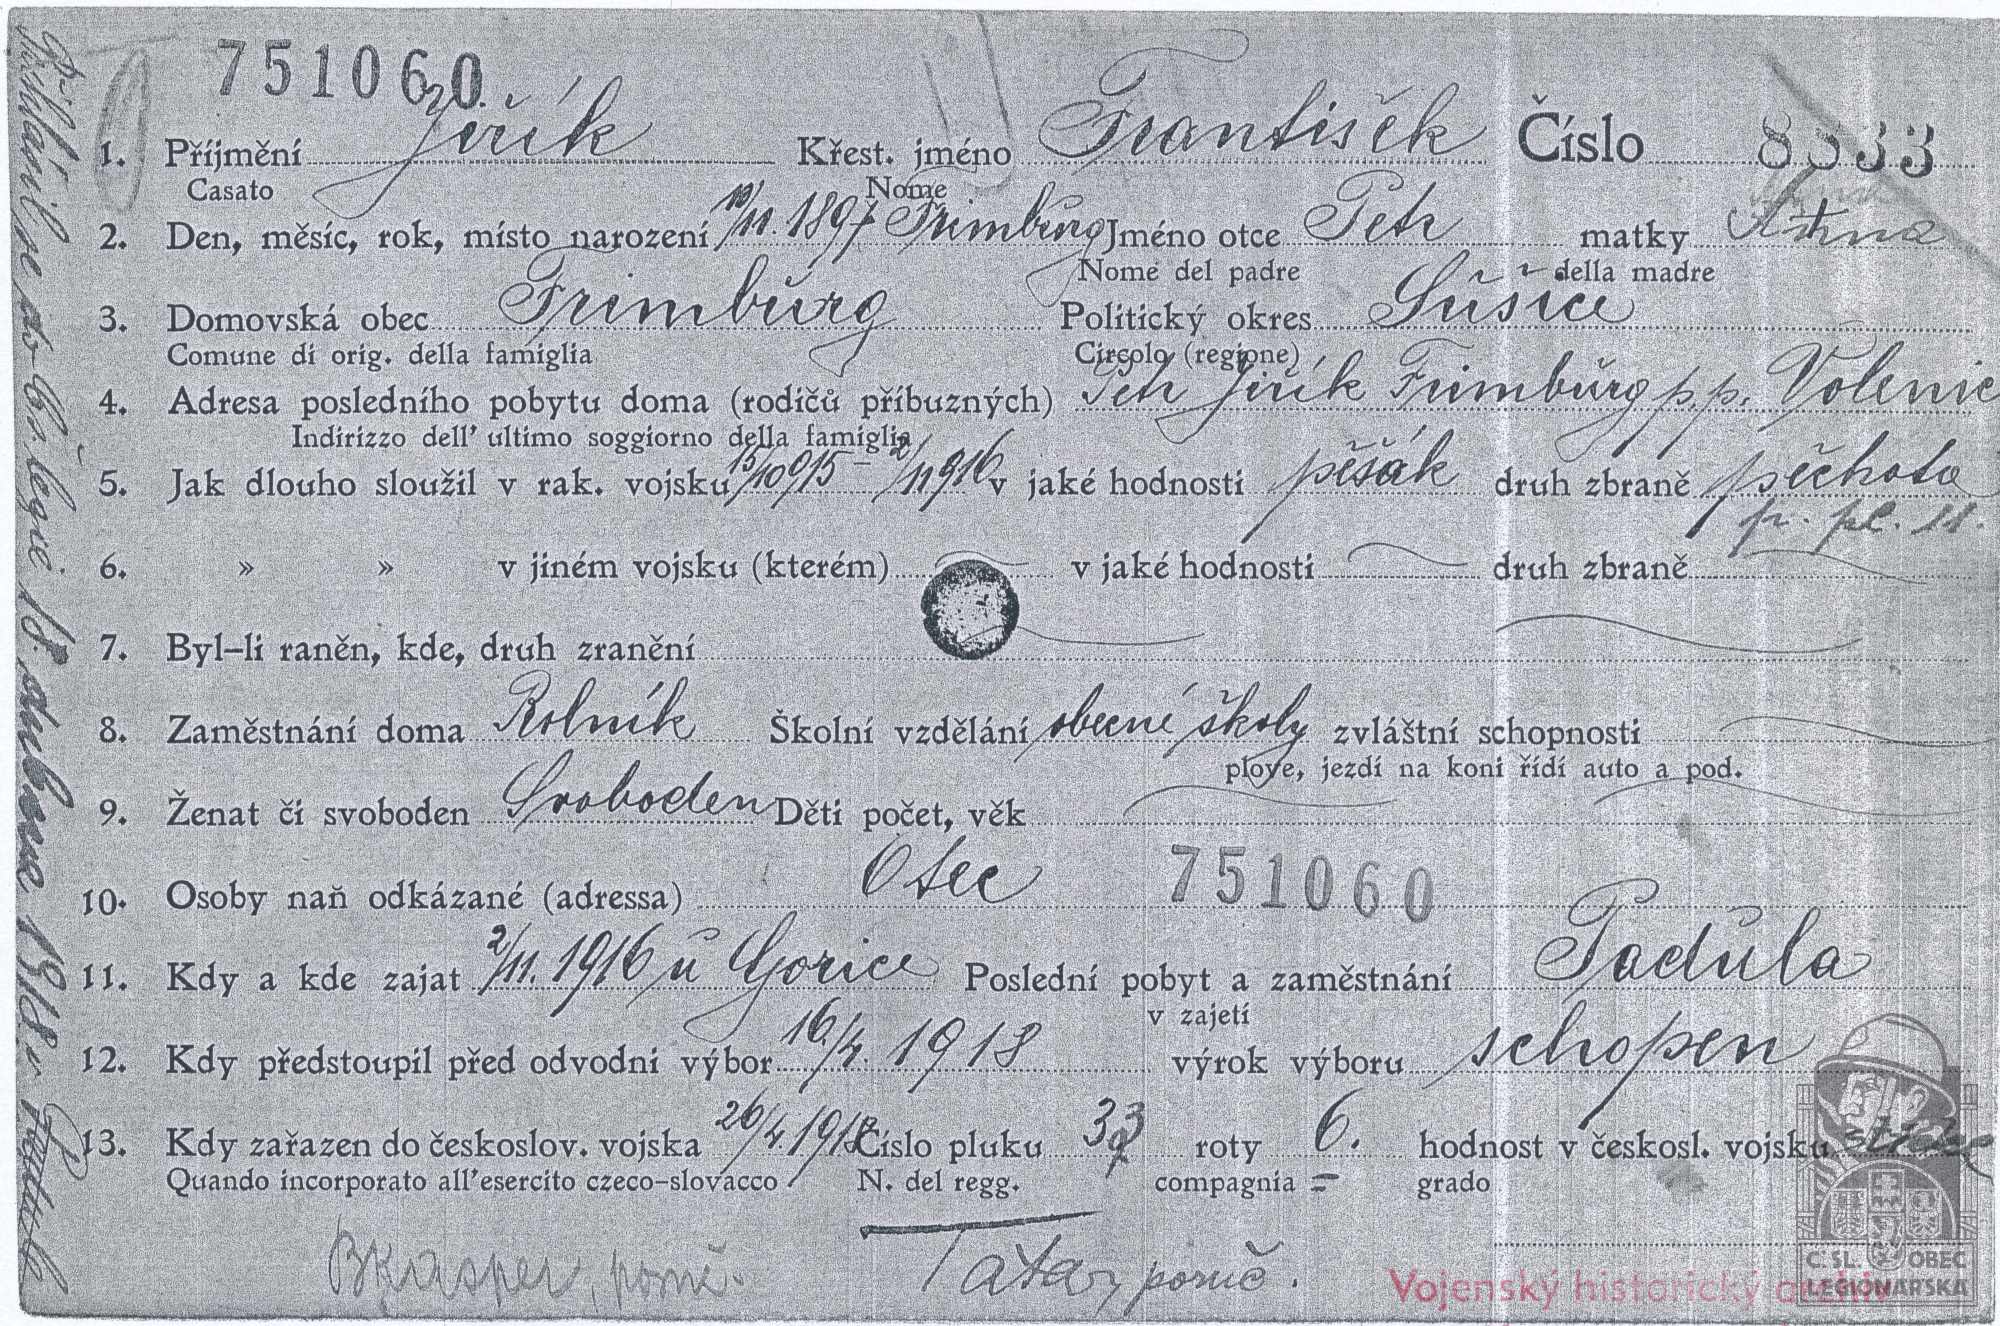 751060.
1. Příjmění Jiřík Křest. jméno František Číslo 8533
Casato Nome
2. Den, měsíc, rok, místo narození 11. 1897 Frimburg Jméno otce Petr matky Anna
Nome del padre della madre
3. Domovská obec Frimburg Politický okres Sušice
Comune di orig. della famiglia Circolo (regione)
4. Adresa posledního pobytu doma (rodičů příbuzných) Petr Jiřík Frimburg p.p. Volenic
Indirizzo dell' ultimo soggiorno della famiglia
5. Jak dlouho sloužil v rak. vojsku 15/10 915 - 2/11 916 v jaké hodnosti pěšák druh zbraně pěchota
p. pl. 11.
6. » » v jiném vojsku (kterém) v jaké hodnosti druh zbraně
7. Byl-li raněn, kde, druh zranění
8. Zaměstnání doma Rolník Školní vzdělání obecné školy zvláštní schopnosti
plove, jezdí na koni řídí auto a pod.
9. Ženat či svoboden Svoboden Děti počet, věk
10. Osoby naň odkázané (adressa) Otec 751060
11. Kdy a kde zajat 2/11. 1916 u Gorice Poslední pobyt a zaměstnání Padula
v zajetí
12. Kdy předstoupil před odvodni výbor 16/4. 1918 výrok výboru schopen
13. Kdy zařazen do českoslov. vojska 26/4. 1918 Číslo pluku 33 roty 6. hodnost v českosl. vojsku
Quando incorporato all'esercito czeco-slovacco N. del regg. compagnia = grado
BKasper, poruč. Tatar, poruč.
Přihlásil se do Čs. legie 18. dubna 1918. v Padule
Vojenský historický archiv
Č. SL. OBEC
LEGIONÁŘSKÁ